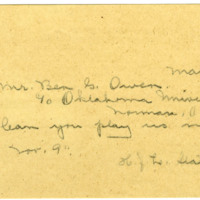 Ma
Mr. Ben G. Owen.
% Oklahoma Unive
Norman, O
lean you play us
Nov. 9"
H. J. L.